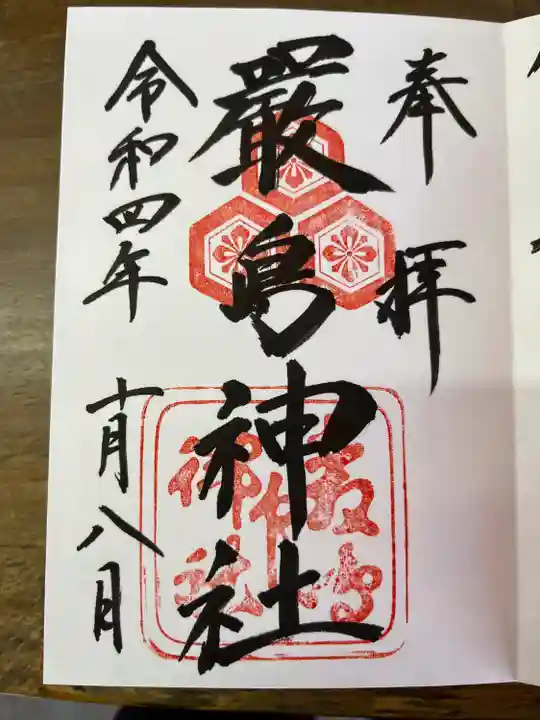 奉拝
厳島神社
令和四年
十月八日